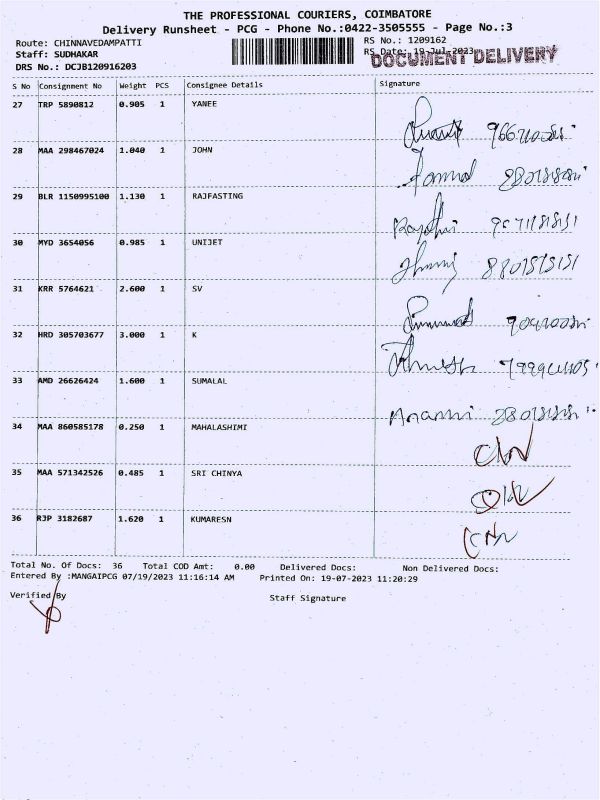 THE PROFESSIONAL COURIERS, COIMBATORE
Delivery Runsheet - PCG - Phone No.:0422-3505555 - Page No.:3
Route: CHINNAVEDAMPATTI
RS No.: 1209162
Staff: SUDHAKAR
RS Date: 19-Jul-2023
DOCUMENT DELIVERY
DRS No.: DCJB120916203
S No Consignment No Weight PCS Consignee Details Signature
27 TRP 5890812 0.905 1 YANEE
28 MAA 298467024 1.040 1 JOHN
29 BLR 1150995100 1.130 1 RAJFASTING
30 MYD 3654056 0.985 1 UNIJET
31 KRR 5764621 2.600 1 SV
32 HRD 305703677 3.000 1 K
33 AMD 26626424 1.600 1 SUMALAL
34 MAA 860585178 0.250 1 MAHALASHIMI
35 MAA 571342526 0.485 1 SRI CHINYA
36 RJP 3182687 1.620 1 KUMARESN
Total No. Of Docs: 36 Total COD Amt: 0.00 Delivered Docs: Non Delivered Docs:
Entered By :MANGAIPCG 07/19/2023 11:16:14 AM Printed On: 19-07-2023 11:20:29
Verified By Staff Signature